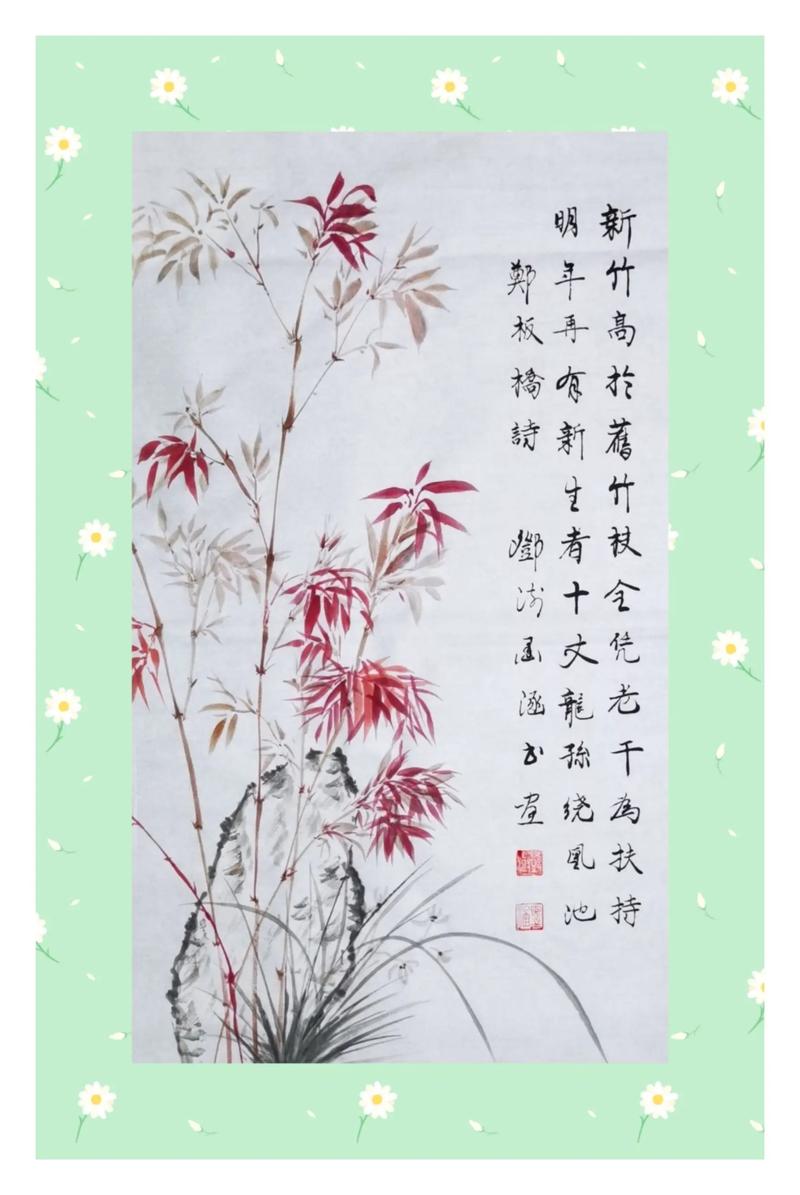 新竹高於舊竹枝全凭老干為扶持
明年再有新生者十丈龍孫绕鳳池
鄭板橋詩 鄧澍函涵书画